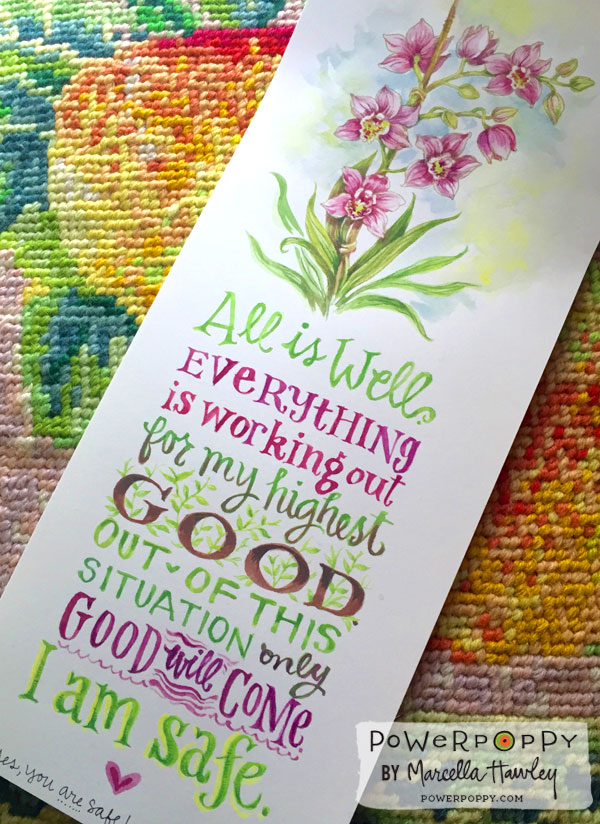 All is Well.
EVERYTHING
is working out
for my highest
GOOD.
OUT OF THIS
SITUATION only
GOOD will COME
I am safe.
yes, you are safe!
POWERPOPPY
BY Marcella Hawley
POWERPOPPY.COM